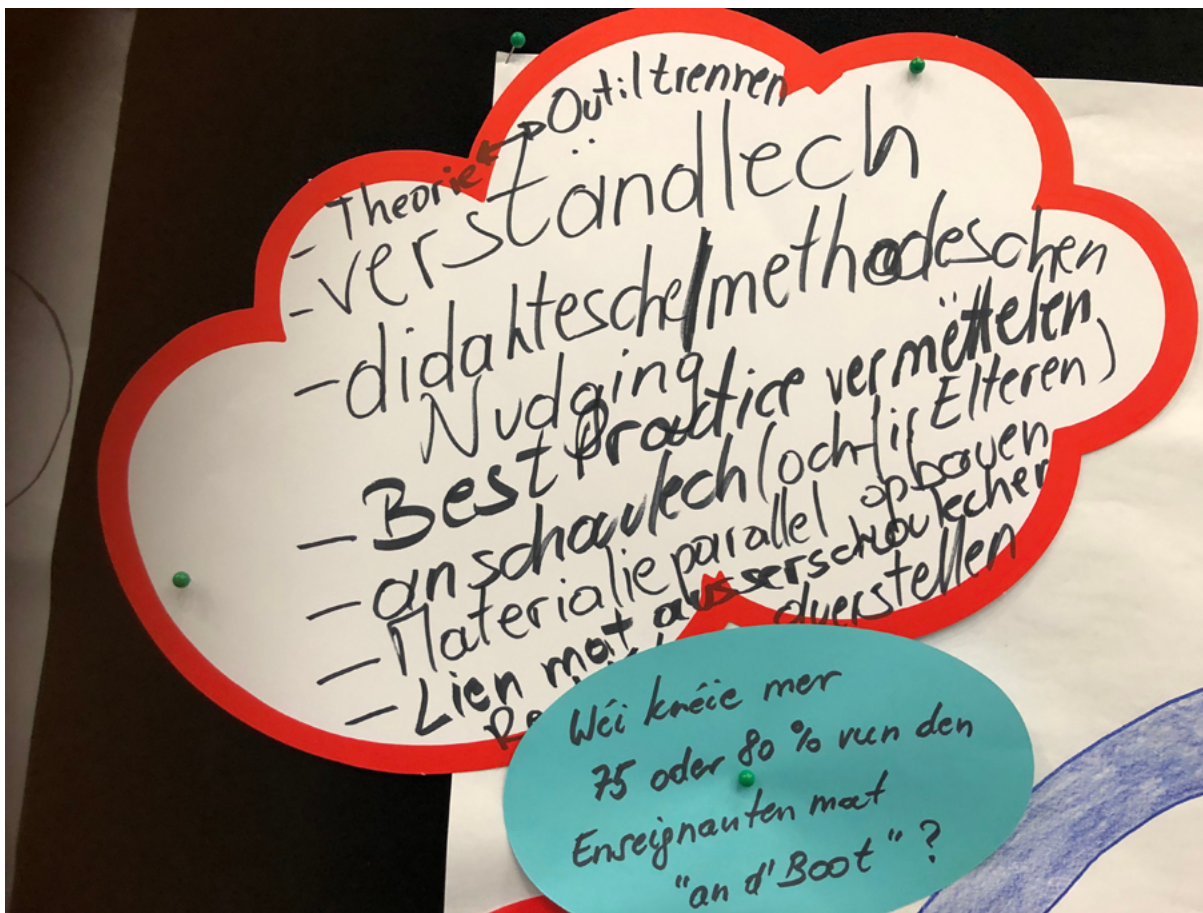 - Theorie <-> Outil trennen
- verständlech
- didaktesche/methodeschen
Nudging
- Best Practice vermëttelen
- anschaulech (och fir Elteren)
- Materialie parallel opbauen
- Lien mat ausserschoulecher
duerstellen
Wéi kréie mer
75 oder 80 % vun den
Enseignanten mat
"an d'Boot"?